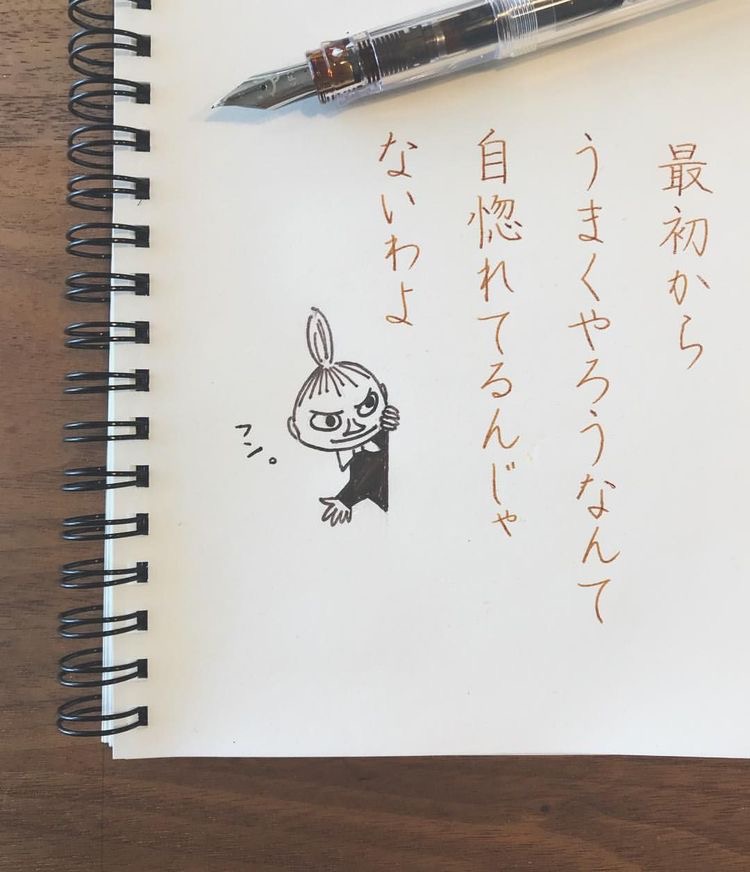 最初から
うまくやろうなんて
自惚れてるんじゃ
ないわよ
フン。